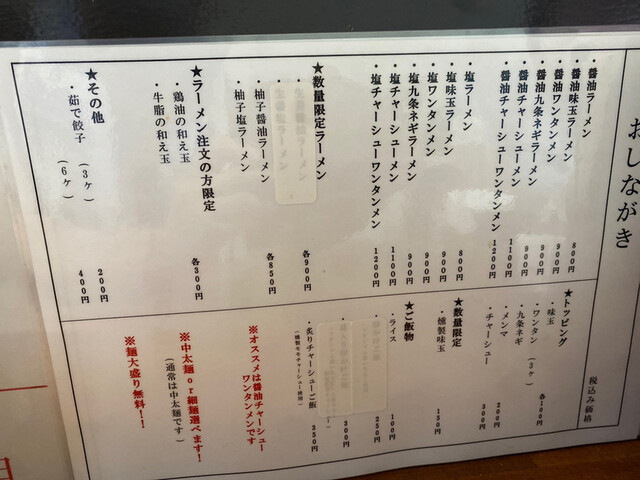 おしながき
税込み価格
・醤油ラーメン 800円
・醤油味玉ラーメン 900円
・醤油ワンタンメン 900円
・醤油九条ネギラーメン 900円
・醤油チャーシューメン 1100円
・醤油チャーシューワンタンメン 1200円
・塩ラーメン 800円
・塩味玉ラーメン 900円
・塩ワンタンメン 900円
・塩九条ネギラーメン 900円
・塩チャーシューメン 1100円
・塩チャーシューワンタンメン 1200円
★数量限定ラーメン
各900円
・柚子醤油ラーメン
・柚子塩ラーメン 各850円
★ラーメン注文の方限定
・鶏油の和え玉
・牛脂の和え玉 各300円
★その他
・茹で餃子 (3ヶ) 200円
(6ヶ) 400円
★トッピング
・味玉
・ワンタン (3ヶ)
・九条ネギ 各100円
・メンマ 200円
・チャーシュー 300円
★数量限定
・燻製味玉 150円
★ご飯物
・ライス 100円
250円
300円
・炙りチャーシューご飯 350円
(燻製モモチャーシュー使用)
※オススメは醤油チャーシュー
ワンタンメンです
※中太麺or細麺選べます!
(通常は中太麺です)
※麺大盛り無料!!